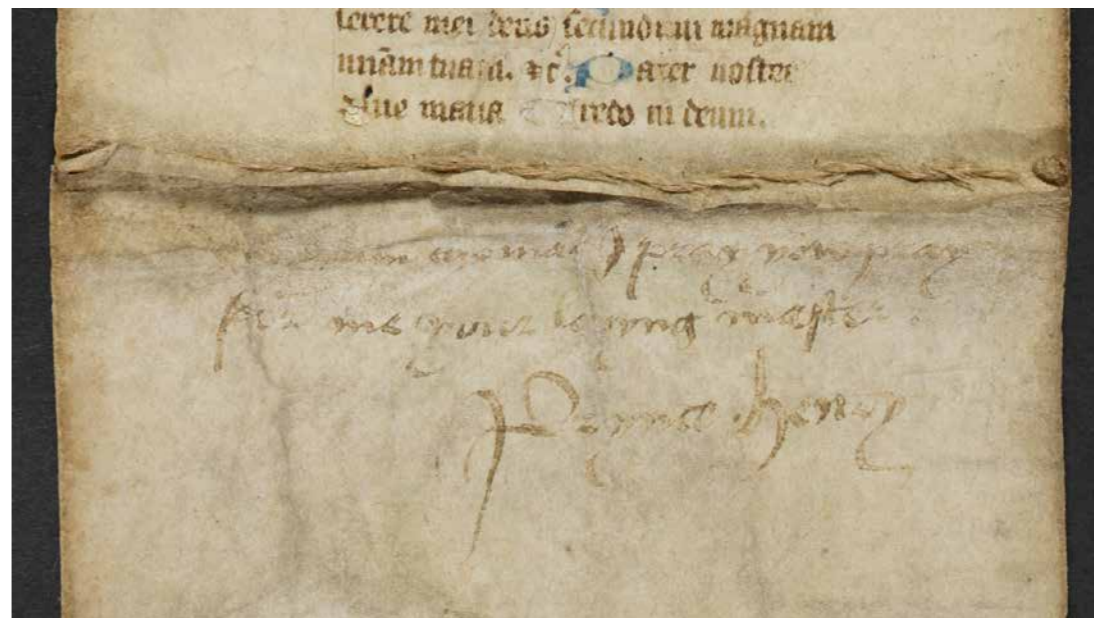 serere mei deus secundum magnam
miam tuam. ⁊c. Pater noster
Aue maria Credo in deum.
thomas I pray yow pray
for me your lovyng master
Prynce Henry